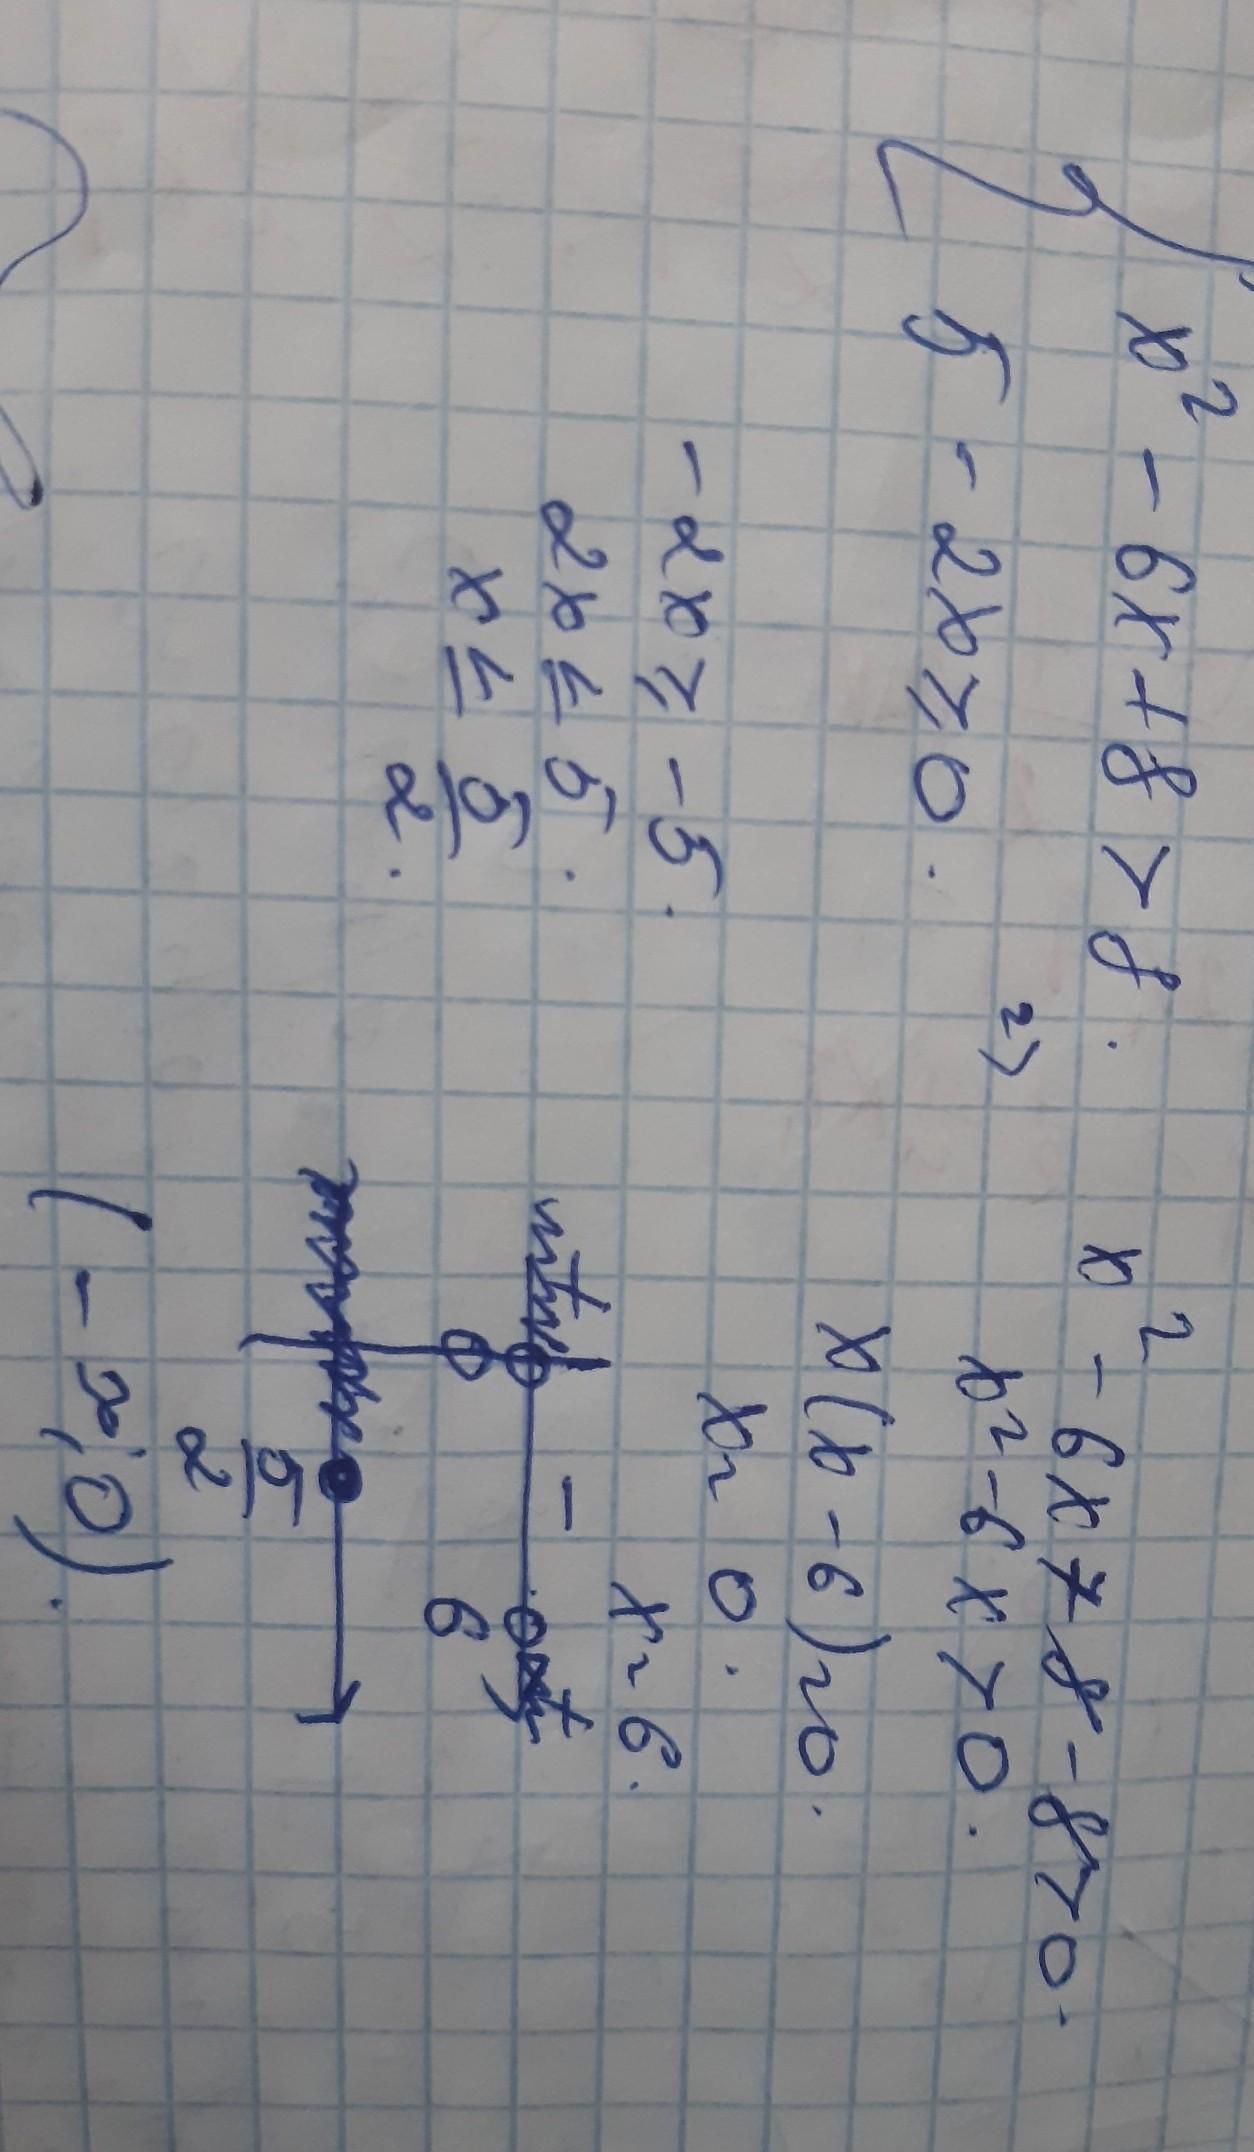 x² - 6x + 8 > 8.
5 - 2x ≥ 0.
- 2x ≥ - 5.
2x ≤ 5.
x ≤ 5/2.
2)
x² - 6x + 8 - 8 > 0.
x² - 6x > 0.
x(x - 6) = 0.
x = 0.
x = 6.
+ - +
0 6
5/2
(- ∞; 0).